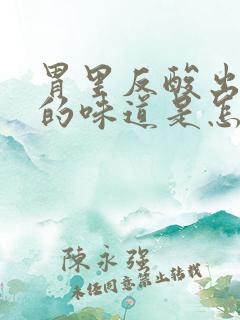 胃里反酸出
的味道是怎
陳永强
未经同意禁止转载